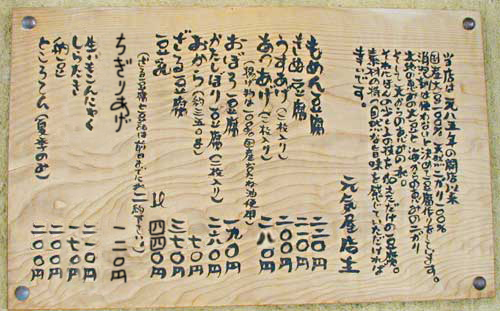 当店は一九八五年の開店以来
国産大豆100%天然にがり100%
消泡剤は使わないと決めて豆腐作りをしてます。
大地の恵みの大豆と海からの恵みのにがり
そして天からのめぐみの水。
それにほんの少し人の技を加えただけの豆腐。
素材の持つ自然な旨味を感じていただければ
幸いです。
元気屋店主
もめん豆腐 二二〇円
きぬ豆腐 二二〇円
うすあげ(二枚入り) 二〇〇円
あつあげ(二枚入り) 二八〇円
(揚げ油は100%国産なたね油使用)
おぼろ豆腐 一九〇円
かたしぼり豆腐(二枚入り) 二八〇円
おから(約三五〇g) 七〇円
ざる豆腐 三七〇円
豆乳 1ℓ 四四〇円
(ざる豆腐と豆乳は前日までにご予約下さい)
ちぎりあげ 一二〇円
生いもこんにゃく 二一〇円
しらたき 一七〇円
納豆 二一〇円
ところてん(夏季のみ) 二〇〇円